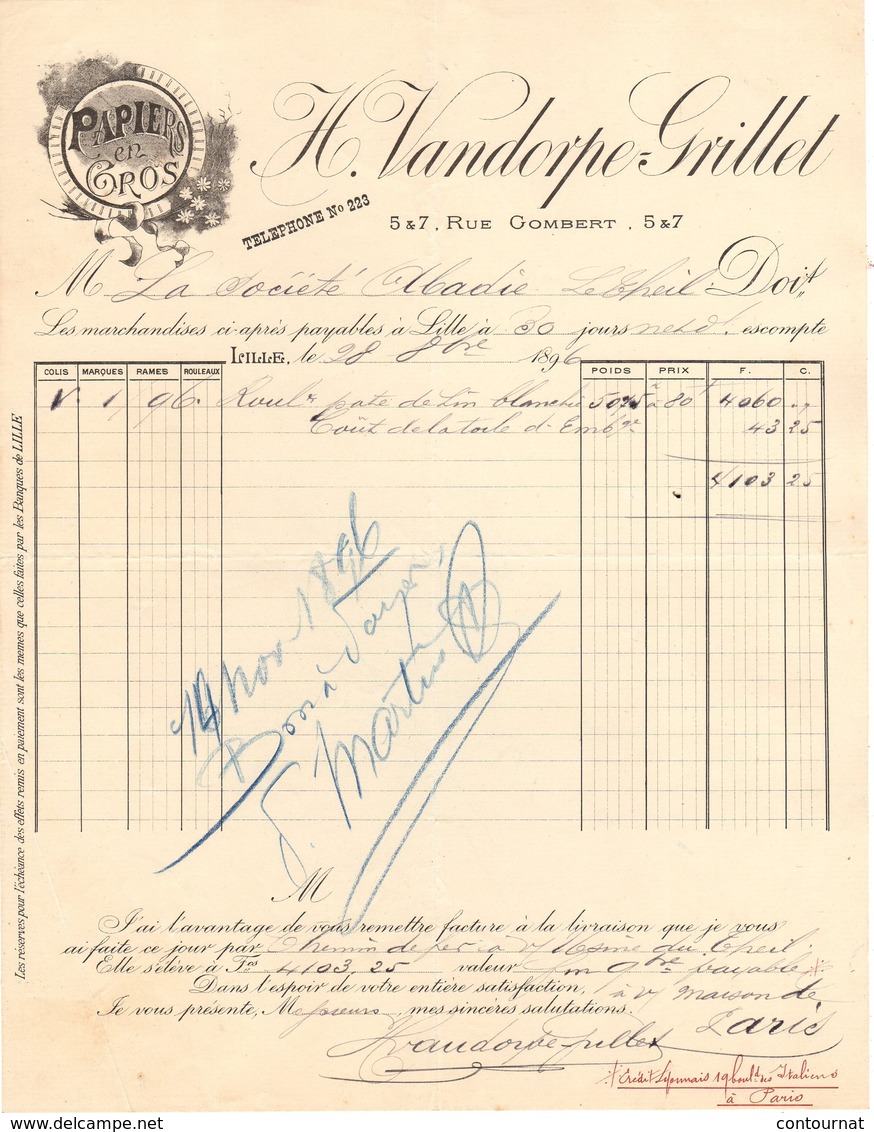 PAPIERS
en
GROS
H. Vandorpe-Grillet
TELEPHONE No 223
5 & 7, RUE GOMBERT, 5 & 7
M La Société Abadie Le Theil Doit
Les marchandises ci-après payables à Lille à 30 jours net d' escompte
LILLE, le 28 8bre 1896
COLIS MARQUES RAMES ROULEAUX POIDS PRIX F. C.
V. 1/96 Roulx pate de Lin blanchie 5075 à 80 4060 "
Coût de la toile d'Embge 43 25
4103 25
14 Nov 1896
Bon à Payer
Martin
Les réserves pour l'échéance des effets remis en paiement sont les mêmes que celles faites par les Banques de LILLE
M
J'ai l'avantage de vous remettre facture à la livraison que je vous
ai faite ce jour par Chemin de fer à v/ Usine du Theil
Elle s'élève à Fcs 4103.25 valeur fin 9bre payable
Dans l'espoir de votre entière satisfaction, à v/ maison de
Je vous présente, Messieurs, mes sincères salutations. Paris
HVandorpe Grillet
Crédit Lyonnais 19 bould des Italiens
à Paris
© contournat